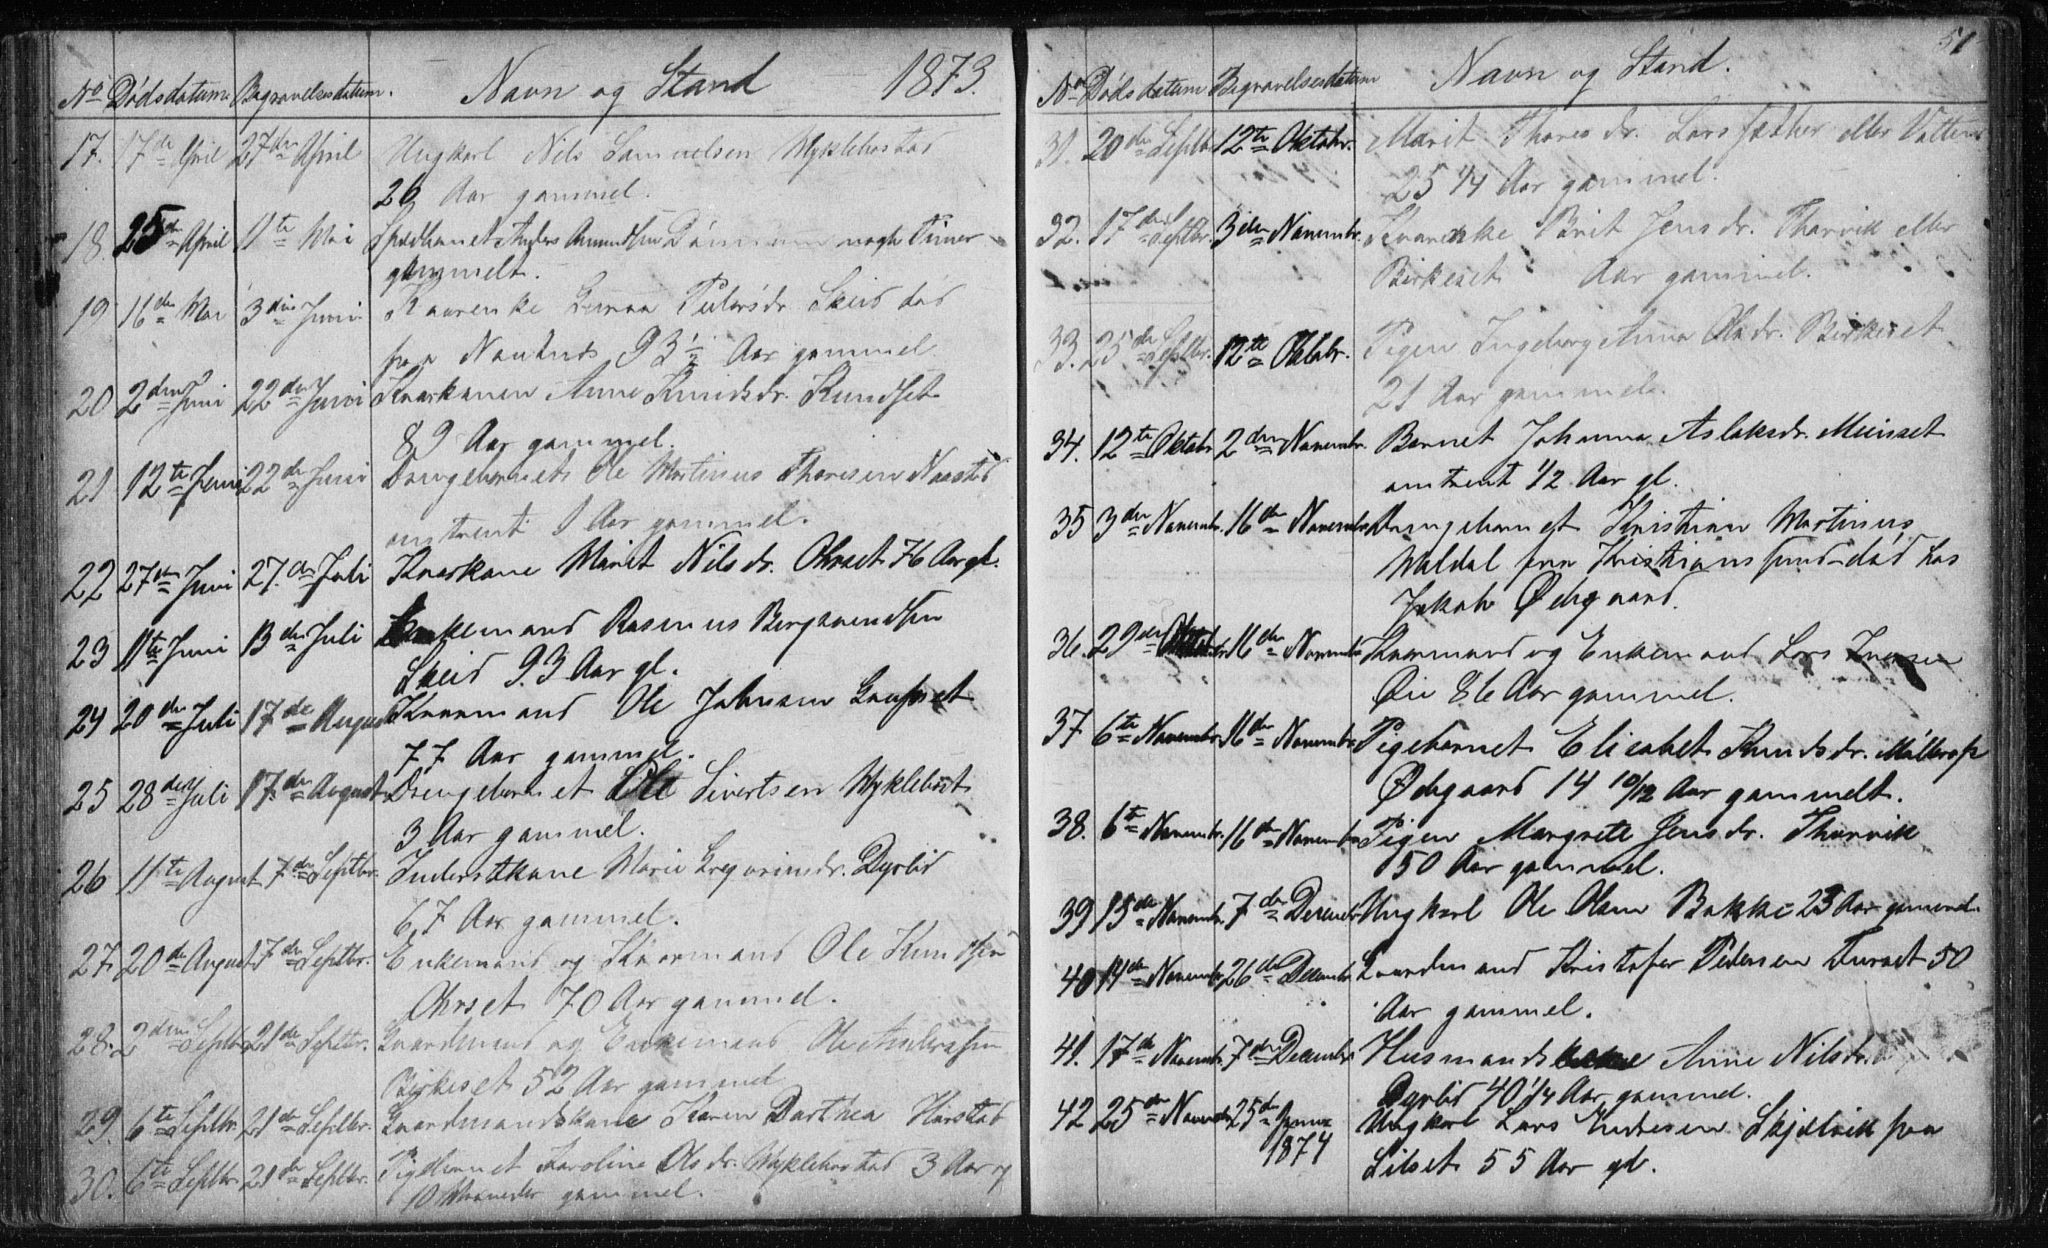 No Dødsdatum Begravelsesdatum. Navn og Stand 1873.
17. 17de April 27den April Ungkarl Nils Samuelsen Myklebostad
26 Aar gammel.
18. 25de April 11te Mai Spædbarnet Anders Amundsen nogle Timer
gammelt.
19 16de Mai 3die Juni Kaarenke Pedersdr. Skeid død
paa 93½ Aar gammel
20 2den Juni 22den Juni Kaarkonen Anne Knudsdr. Kundset
89 Aar gammel.
21 12te Juni 22de Juni Drengebarnet Ole Martinus Thoresen Naastad
omtrent 1 Aar gammel.
22 27de Juni 27. de Juli Kaarkone Marit Nilsdr. Ohrset 76 Aar gl.
23 11te Juni 13de Juli Enkemand Rasmus Bergsvendsen
Skeid 93 Aar gl.
24 20de Juli 17de August Kaarmand Ole Johnsen Gaupset
77 Aar gammel.
25 28de Juli 17de August Drengebarnet Ole Sivertsen Myklebost
3 Aar gammel.
26 11te August 7de Septbr. Inderstkone Marie Gregoriusdr. Dyrlid
67 Aar gammel.
27. 20de August 7de Septbr. Enkemand og Kaarmand Ole Knudsen
Ohrset 70 Aar gammel.
28. 2den Septbr 21de Septbr. Gaardmand og Enkemand Ole Andersen
Birkeset 52 Aar gammel
29. 6te Septbr. 21de Septbr. Gaardmandskone Karen Dorthea Harstad
30. 6te Septbr. 21de Septbr. Pigebarnet Karoline Olsdr. Myklebostad 3 Aar og
10 Maaneder gammel.
51
No Dødsdatum Begravelsesdatum Navn og Stand.
31. 20de Septbr 12te Oktobr. Marit Thoresdr. eller
25 1/4 Aar gammel.
32. 17de Septbr. 3die Novembr. Kaarenke Brit Jensdr. Thorvik eller
Birkeset Aar gammel.
33. 25de Septbr. 12te Oktobr. Pigen Ingeborg Anna Olsdr. Birkeset
21 Aar gammel.
34. 12te Oktobr 2den Novembr. Barnet Johanna Aslaksdr. Meisset
omtrent 1/2 Aar gl.
35 3de Novembr. 16de Novembr Drengebarnet Kristian Martinus
Waldal fra Kristianssund død hos
Jakob Ødegaard.
36. 29de 16de Novembr Kaarmand og Enkemand Lars Iversen
Øie 86 Aar gammel.
37 6te Novembr. 16de Novembr. Pigebarnet Elisabet Knudsdr.
Ødegaard 14 10/12 Aar gammelt.
38. 6te Novembr. 16de Novembr Pigen Margrete Jensdr. Thorvik
50 Aar gammel.
39 15de Novembr. 7de Decembr Ungkarl Ole Olsen Bakke 23 Aar gammel.
40 14de Novembr. 26de Decembr Gaardmand Kristofer Pedersen Furset 50
Aar gammel.
41. 17de Novembr. 7de Decembr Husmandskone Anne Nilsdr.
Dyrlid 40 1/4 Aar gammel.
42 25de Novembr 25de Januar 1874 Ungkarl Lars Endresen Skjelvik paa
Lilset 55 Aar gl.